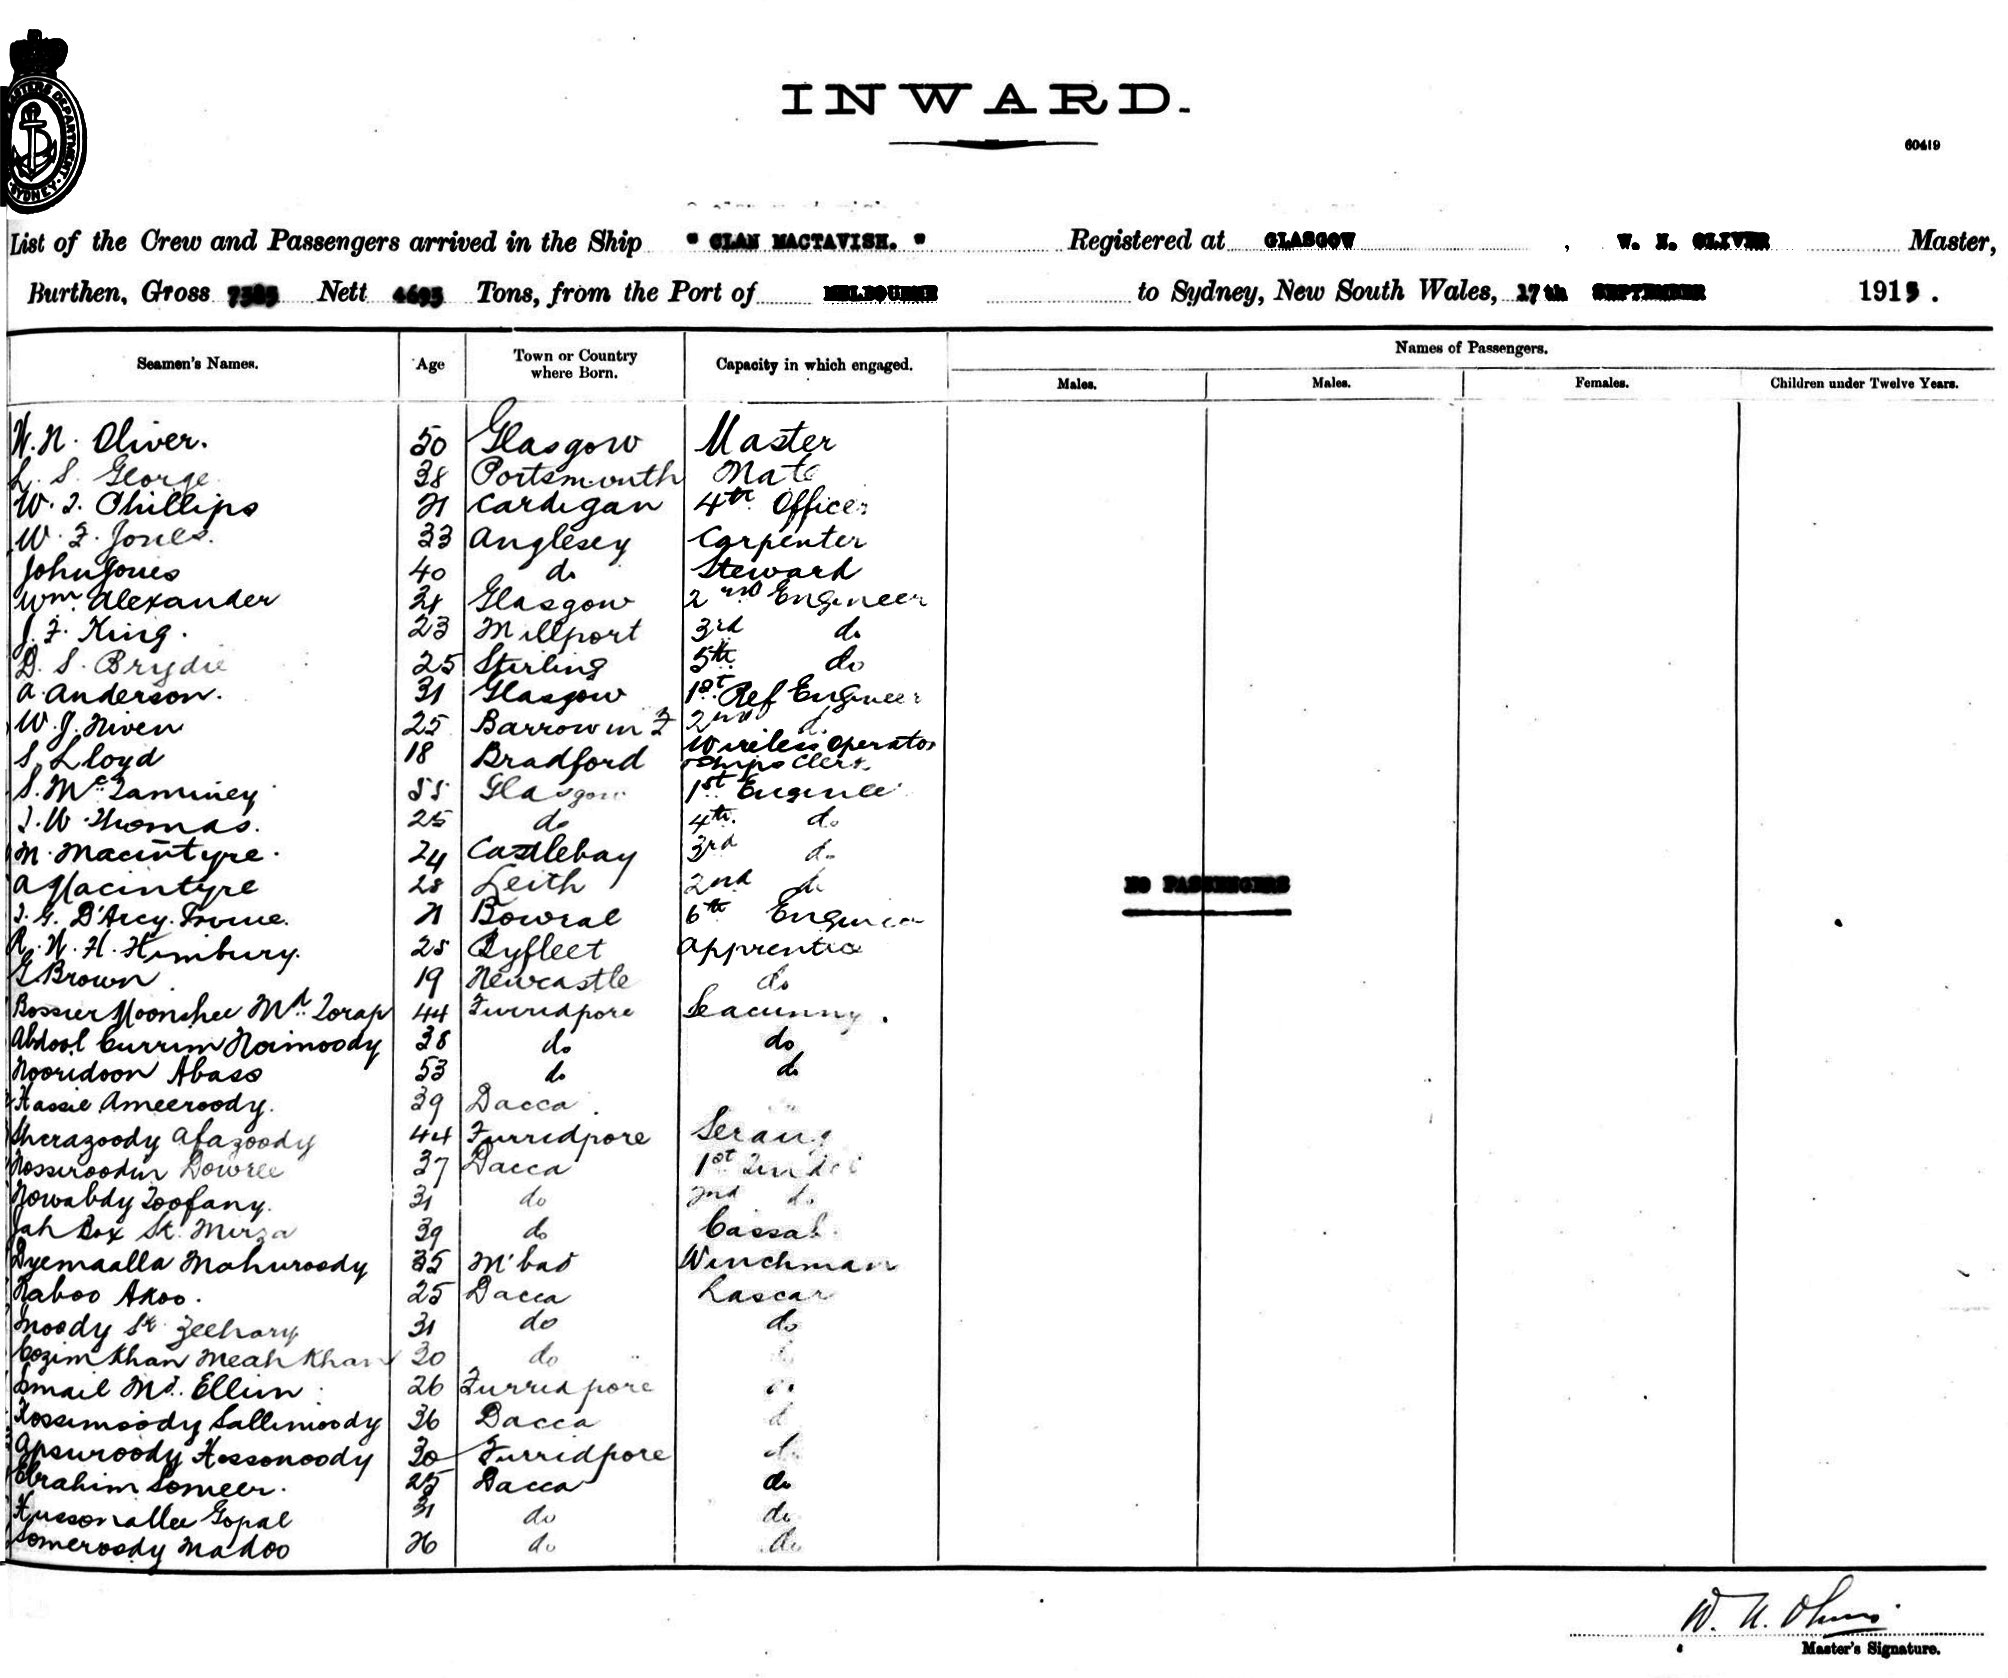 INWARD.
60419
List of the Crew and Passengers arrived in the Ship " CLAN MACTAVISH. " Registered at GLASGOW , W. N. OLIVER Master,
Burthen, Gross 7385 Nett 4695 Tons, from the Port of MELBOURNE to Sydney, New South Wales, 17th SEPTEMBER 1915.
Seamen's Names. Age Town or Country where Born. Capacity in which engaged. Names of Passengers.
Males. Males. Females. Children under Twelve Years.
W. N. Oliver. 50 Glasgow Master
L. S. George 38 Portsmouth Mate
W. J. Phillips 21 Cardigan 4th Officer
W. F. Jones. 33 Anglesey Carpenter
John Jones 40 do Steward
Wm Alexander Glasgow 2nd Engineer
J. F. King. 23 Millport 3rd do
D. S. Brydie 25 Stirling 5th do
A. Anderson. 31 Glasgow 1st Ref Engineer
W. J. Niven 25 Barrow in F 2nd d.
S. Lloyd 18 Bradford Wireless Operator
Ships Clerk
S. Mc 55 Glasgow 1st Engineer
J. W. Thomas. 25 do 4th. do
N. Macintyre. 24 Castlebay 3rd do
A Macintyre 28 Leith 2nd do
J. G. D'Arcy. Irvine. 21 Bowral 6th Engineer
R. N. H. Himbury. 25 Byfleet Apprentice
G Brown 19 Newcastle do
Bossier Moonshee Md. Torap 44 Furridpore Seacunny.
Abdool Currim Noimoody 38 do do
Nooridoon Abass 53 do do
Hassie Ameeroody. 39 Dacca.
Sherazoody Afazoody 44 Furridpore Serang
Nossiroodin Dowree 37 Dacca 1st Tindel
Nowabdy Toofany. 31 do 2nd do
Jah Box Sk. Mirza 39 do Cassab.
Dyemaalla Mahuroody 35 M'bad Winchman
Naboo Akoo. 25 Dacca Lascar
Moody Sk Zeehary 31 do do
Cozim Khan Meah Khan 30 do
Ismail Md. Ellim 26 Furridpore do
Kossimoody Sallimoody 36 Dacca d
Apsuroody Hossonoody 30 Furridpore do
Ebrahim Someer. 25 Dacca do
Hussonallee Gopal 31 do do
Someroody Madoo 26 do do
NO PASSENGERS
W. N. Oliver
Master's Signature.